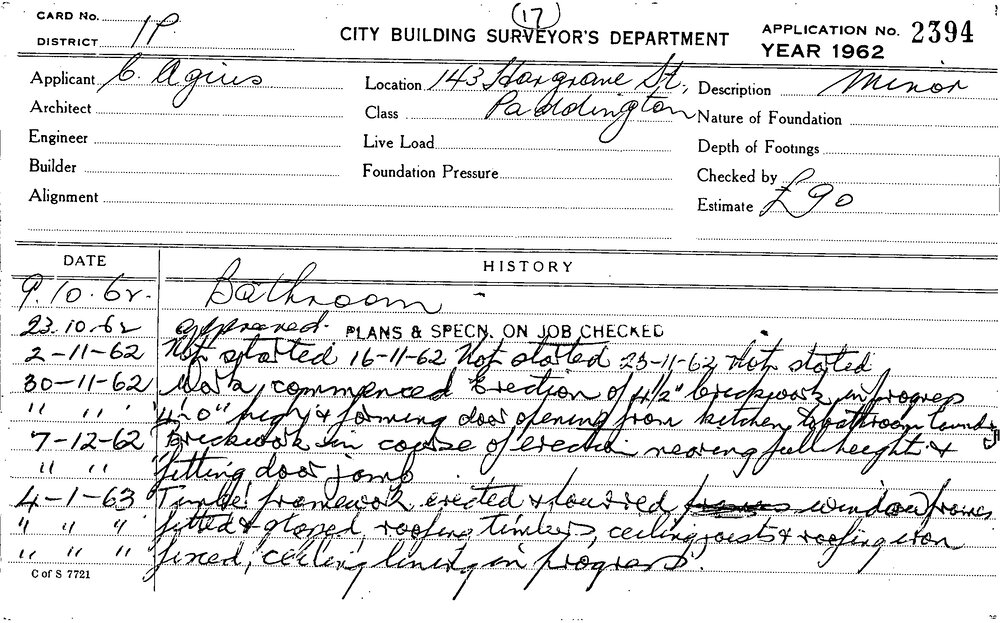 (17)
CARD No.
DISTRICT 1P.
CITY BUILDING SURVEYOR'S DEPARTMENT
APPLICATION No. 2394
YEAR 1962
Applicant C. Agius
Location 143 Hargrave St., Paddington
Description Minor
Architect
Class
Nature of Foundation
Engineer
Live Load
Depth of Footings
Builder
Foundation Pressure
Checked by
Alignment
Estimate £90
DATE HISTORY
9.10.62. Bathroom -
23.10.62 approved. PLANS & SPECN. ON JOB CHECKED
2-11-62 Not started 16-11-62 Not started 23-11-62 Not started
30-11-62 Work commenced Erection of 4½" brickwork in progress
" " " 4'-0" high & forming door opening from kitchen to bathroom laundry
7-12-62 Brickwork in course of erection nearing full height &
" " " fitting door jamb
4-1-63 Timber framework erected & window frames
" " " fitted & roofing timbers, ceiling joist & roofing iron
" " " fixed, ceiling lining in progress.
C of S 7721